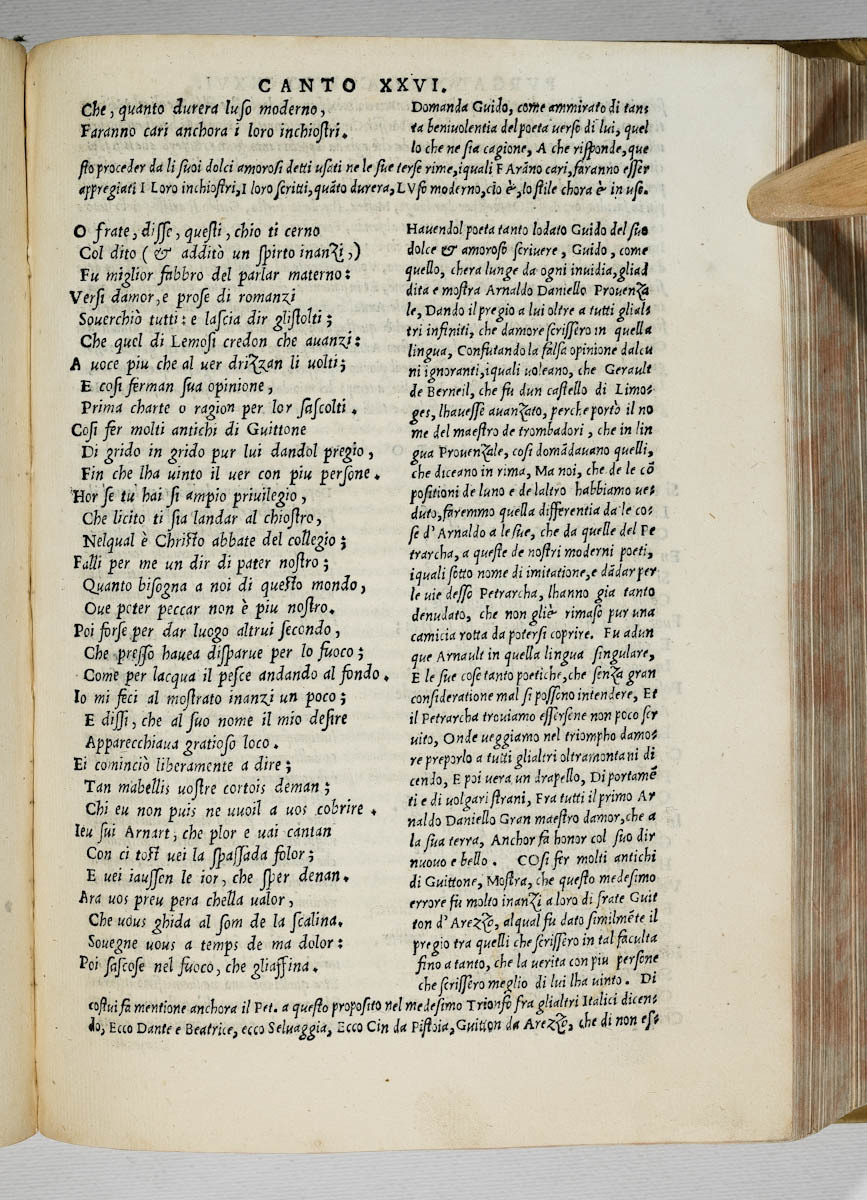 CANTO XXVI.
Che, quanto durera luso moderno,
Faranno cari anchora i loro inchiostri.
Domanda Guido, come ammirato di tan-
ta beniuolentia del poeta uerso di lui, quel
lo che ne sia cagione, A che risponde, que
sto proceder da li suoi dolci amorosi detti usati ne le sue terse rime, iquali FArāno cari, faranno esser
appregiati I Loro inchiostri, I loro scritti, quāto durera, LVso moderno, cio è, lo stile chora è in uso.
O frate, disse, questi, chio ti cerno
Col dito (& additò un spirto inanzi,)
Fu miglior fabbro del parlar materno:
Versi damor, e prose di romanzi
Souerchiò tutti: e lascia dir glistolti;
Che quel di Lemosi credon che auanzi:
A uoce piu che al uer drizzan li uolti;
E cosi ferman sua opinione,
Prima charte o ragion per lor sascolti.
Cosi fer molti antichi di Guittone
Di grido in grido pur lui dandol pregio,
Fin che lha uinto il uer con piu persone.
Hor se tu hai si ampio priuilegio,
Che licito ti sia landar al chiostro,
Nelqual è Christo abbate del collegio;
Falli per me un dir di pater nostro;
Quanto bisogna a noi di questo mondo,
Oue poter peccar non è piu nostro.
Poi forse per dar luogo altrui secondo,
Che presso hauea disparue per lo fuoco;
Come per lacqua il pesce andando al fondo.
Io mi feci al mostrato inanzi un poco;
E dissi, che al suo nome il mio desire
Apparecchiaua gratioso loco.
Ei cominciò liberamente a dire;
Tan mabellis uostre cortois deman;
Chi eu non puis ne uuoil a uos cobrire.
Ieu sui Arnart, che plor e uai cantan
Con ci tost uei la spassada folor;
E uei iaussen le ior, che sper denan.
Ara uos preu pera chella ualor,
Che uous ghida al som de la scalina.
Souegne uous a temps de ma dolor:
Poi sascose nel fuoco, che gliaffina.
Hauendol poeta tanto lodato Guido del suo
dolce & amoroso scriuere, Guido, come
quello, chera lunge da ogni inuidia, gliad
dita e mostra Arnaldo Daniello Prouenza
le, Dando il pregio a lui oltre a tutti glial-
tri infiniti, che damore scrissero in quella
lingua, Confutando la falsa opinione dalcu
ni ignoranti, iquali uoleano, che Gerault
de Berneil, che fu dun castello di Limo-
ges, lhauesse auanzato, perche portò il no
me del maestro de trombadori, che in lin
gua Prouenzale, cosi domādauano quelli,
che diceano in rima, Ma noi, che de le cō
positioni de luno e de laltro habbiamo ue-
duto, faremmo quella differentia da le co-
se d'Arnaldo a le sue, che da quelle del Pe
trarcha, a queste de nostri moderni poeti,
iquali sotto nome di imitatione, e dādar per
le uie desso Petrarcha, lhanno gia tanto
denudato, che non gliè rimaso pur una
camicia rotta da potersi coprire. Fu adun
que Arnault in quella lingua singulare,
E le sue cose tanto poetiche, che senza gran
consideratione mal si posseno intendere, Et
il Petrarcha trouiamo essersene non poco ser
uito, Onde ueggiamo nel triompho damo-
re preporlo a tutti glialtri oltramontani di
cendo, E poi uera un drapello, Di portamē
ti e di uolgari strani, Fra tutti il primo Ar
naldo Daniello Gran maestro damor, che a
la sua terra, Anchor fa honor col suo dir
nuouo e bello. COsi fer molti antichi
di Guittone, Mostra, che questo medesimo
errore fu molto inanzi a loro di frate Guit
ton d'Arezzo, al qual fu dato similmēte il
pregio tra quelli che scrissero in tal faculta
fino a tanto, che la uerita con piu persone
che scrissero meglio di lui lha uinto. Di
costui fa mentione anchora il Pet. a questo proposito nel medesimo Trionfo fra glialtri Italici dicen-
do, Ecco Dante e Beatrice, ecco Seluaggia, Ecco Cin da Pistoia, Guitton da Arezzo, che di non es-